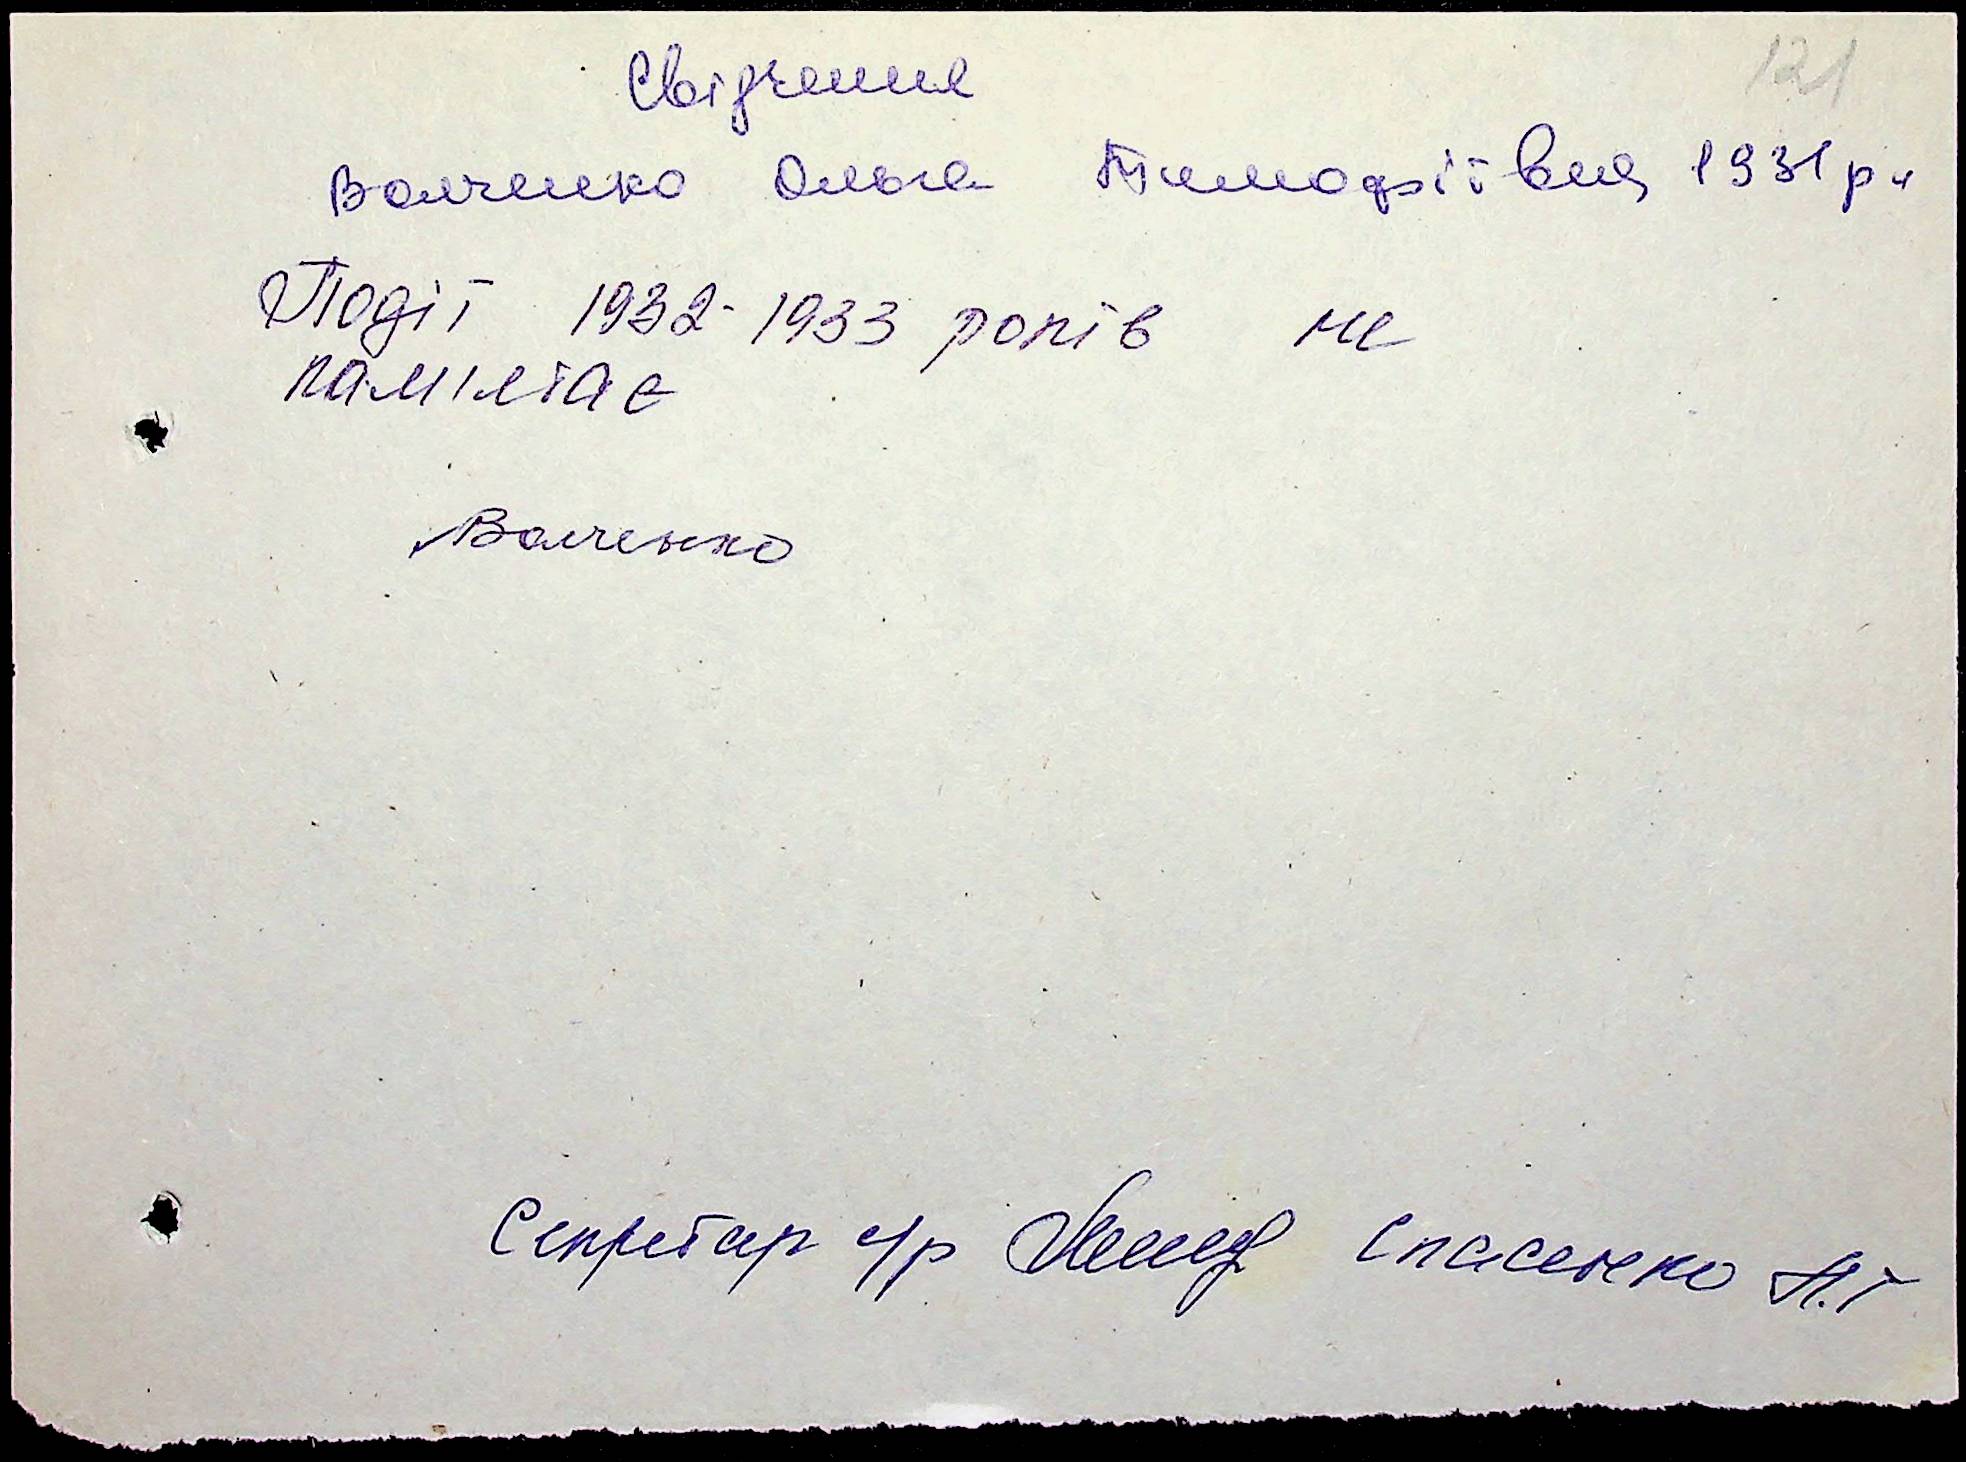 121
Свідчення
Волченко Ольга Тимофіївна, 1931 р.
Події 1932-1933 років не
памʼятає
Волченко
Секретар с/р Спасенко Н.Г